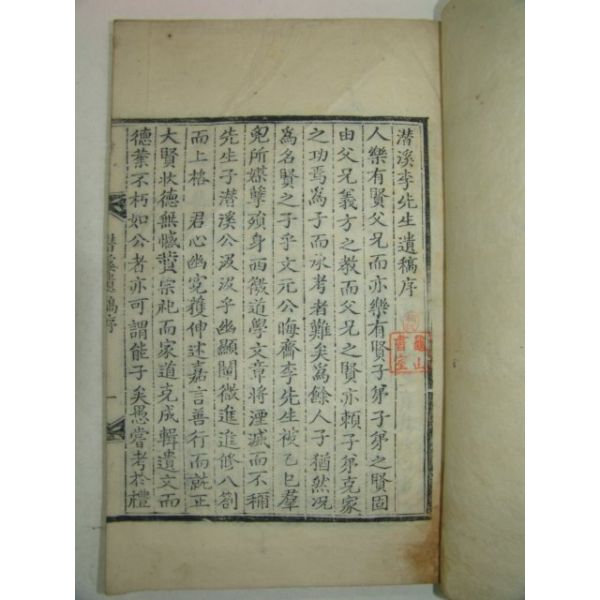 潛溪李先生遺稿序
人樂有賢父兄而亦樂有賢子弟子弟之賢固
由父兄義方之教而父兄之賢亦賴子弟克家
之功焉爲子而承考者難矣爲餘人子猶然况
爲名賢之子乎文元公晦齋李先生被乙巳羣
兇所媒孼殞身西徼道學文章將湮滅而不稱
先生子潛溪公汲汲乎幽顯闡微進進修八劄
而上格 君心幽寃獲伸述嘉言善行而就正
大賢狀德無憾賛宗祀而家道克成輯遺文而
德業不朽如公者亦可謂能子矣愚嘗考於禮
潛溪遺稿序
一
龜山書室